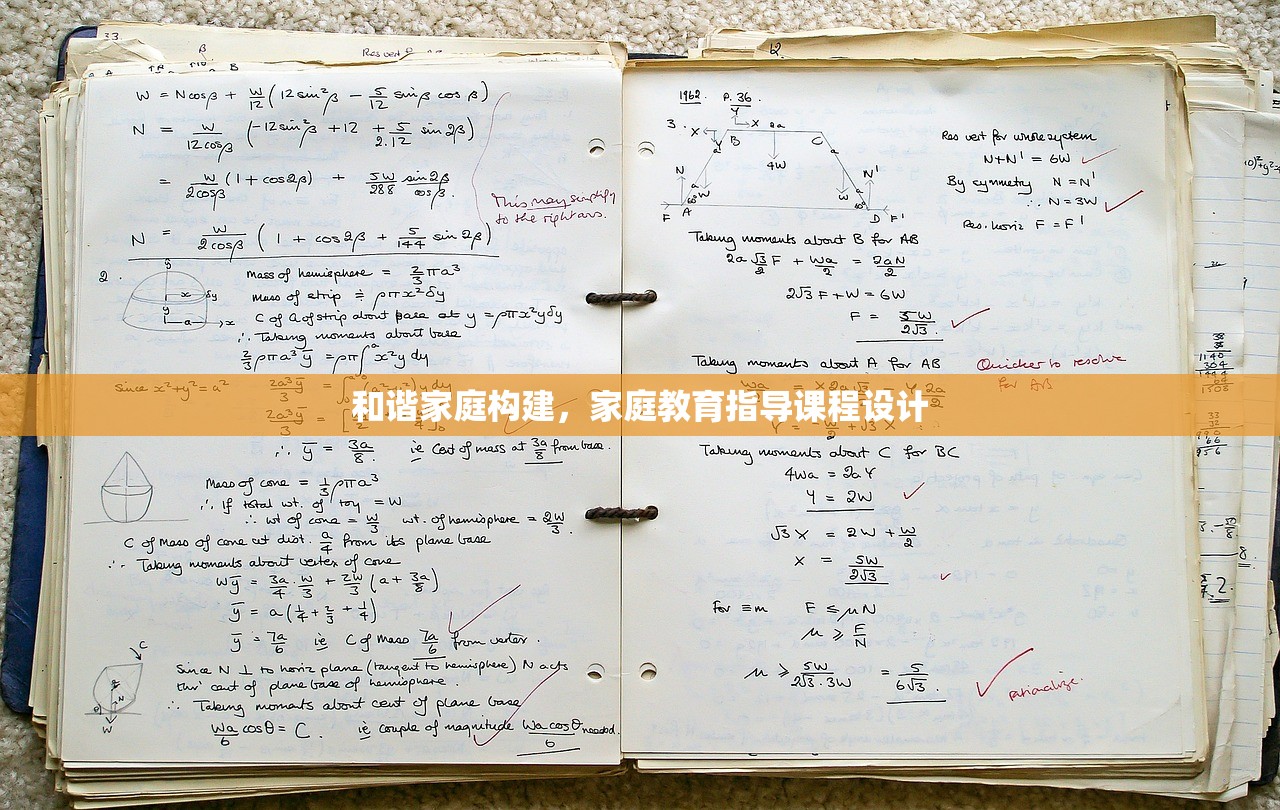 33.
Res vert
W = Ncosβ + W/12 (12 sin²β − 5/12 sinβ cosβ)
N = W/12cosβ (−12sin²β + 12 + 5/2.12 sin 2β)
= W/2cosβ (1 + cos2β) + 5W/288 sin2β/cosβ.
This may simplify
to the right ans.
N = W/2cosβ (1 + cos2β + 5/144 sin 2β)
2.
Mass of hemisphere = 2/3 πa³
Mass of strip ≑ ρπx²δy
C of G of strip about base at y = ρπx²yδy
∴ Taking moments about base
2/3 ρπa³ȳ = ρπ∫x²y dy
Since x²+y² = a²
∴ ȳ = 3a/8 ie Cent of mass at 3a/8 from base.
Mass of cone = 1/3 ρπa³
∴ If total wt. of toy = W
∴ wt of cone = W/3 wt. of hemisphere = 2W/3.
C of Mass of cone at dist. a/4 from its plane base
∴ Taking moments about vertex of cone
Wȳ = 3a/4 . W/3 + 2W/3 (a + 3a/8)
ȳ = a(1/4 + 2/3 + 1/4)
ȳ = 7a/6 ie C of Mass 7a/6 from vertex.
Since N ⊥ to horiz plane (tangent to hemisphere) N acts
thro' cent of plane base of hemisphere.
∴ Taking moments about cent of plane base
Wa/6 cosθ = C. ie couple of magnitude Wa cosθ/6 needed.
1962. P. 36.
3.
Res vert for whole system
N+N' = 6W
By symmetry N = N'
∴ N = 3W
Res. horiz F = F'
Taking moments about B for AB
2a √3/2 F + Wa/2 = 2aN/2
2√3 F + W = 6W
F = 5W/2√3.
Taking moments about A for AB
Quicker to resolve
for AB
和谐家庭构建，家庭教育指导课程设计
Taking moments about C for BC
4Wa = 2aY
Y = 2W
√3 X = 2W + W/2
X = 5W/2√3
For ≡m F ≤ μN
μ ≥ F/N
μ ≥ 5W/2√3.3W = 5/6√3.
rationalize.